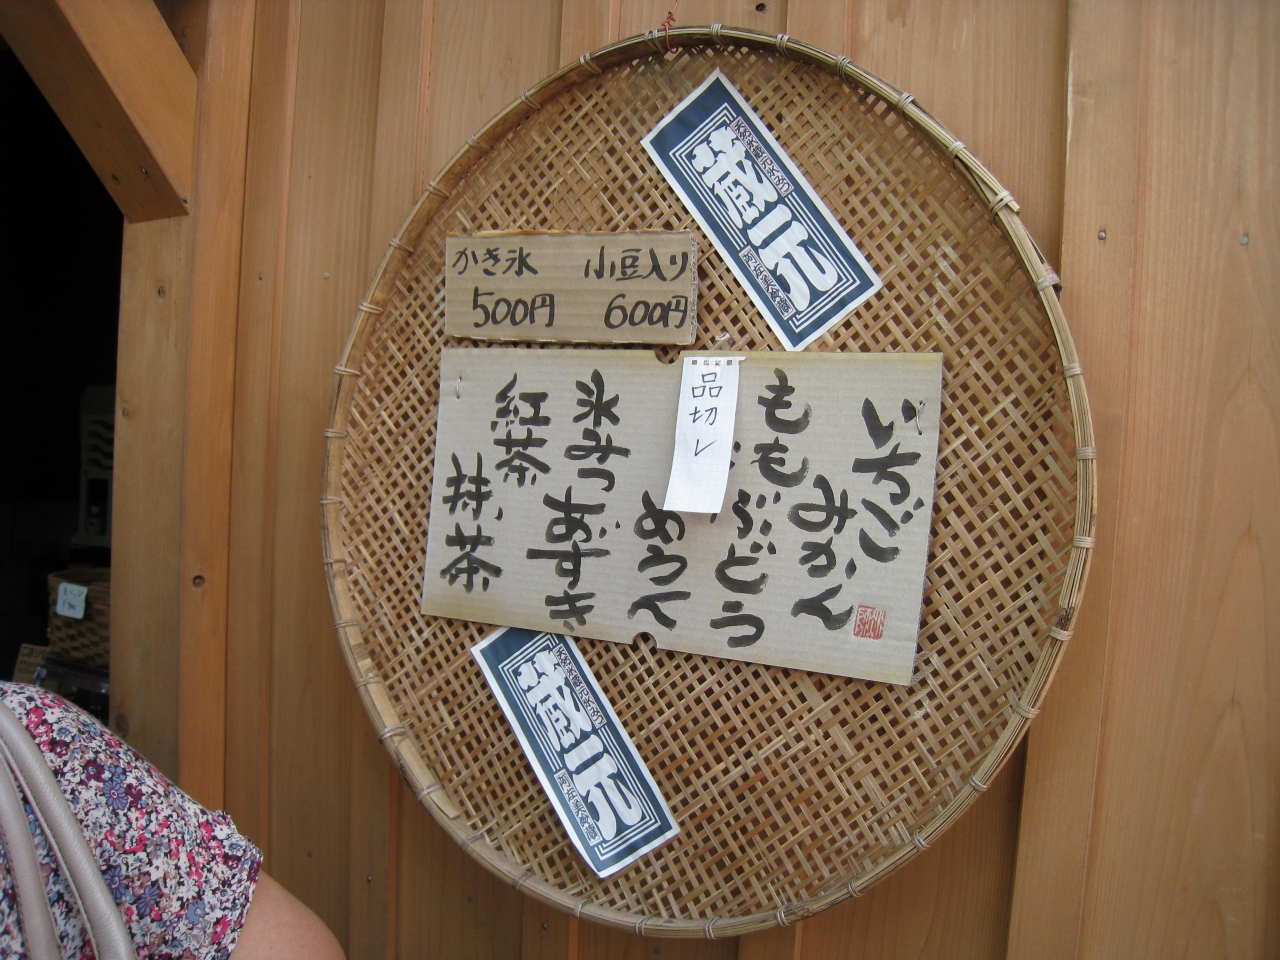 かき氷 小豆入り
500円 600円
いちご
みかん
もも
ぶどう
品切レ
めろん
氷みつ
あずき
紅茶
抹茶
蔵元
蔵元